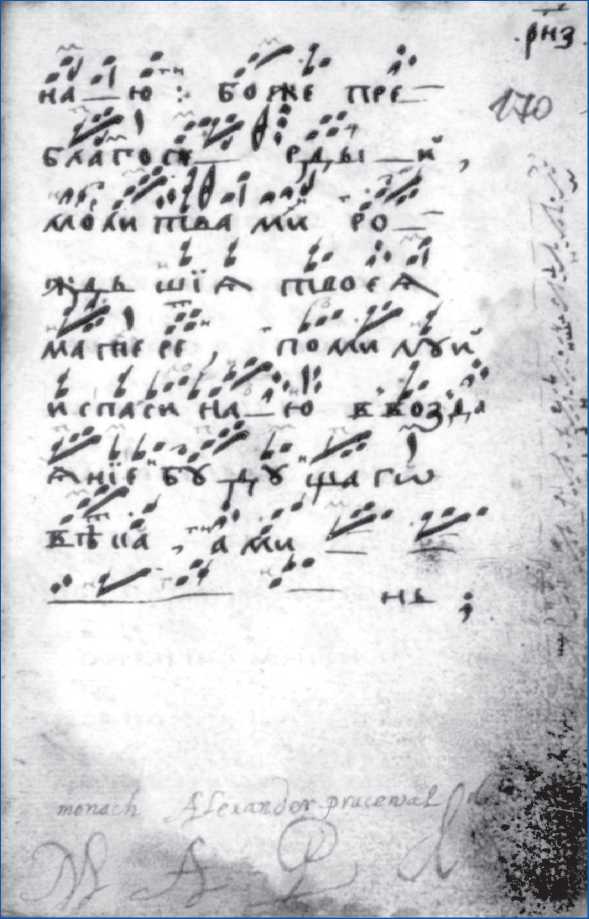 рнз
170
на ю : боже пре
благосе рды й ,
моли тва ми ро
ждь шїѧ твоеѧ
матере , помилуй
и спаси на ю в возда
ѧнїе бу ду щагѡ
вѣка , а ми
нь ;
monach Alexander pracewal
M A P d